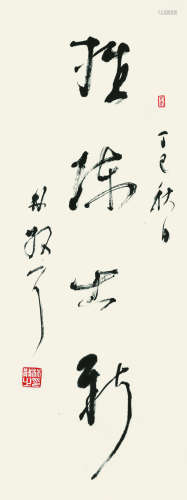 推陈出新
丁巳秋日
林散耳